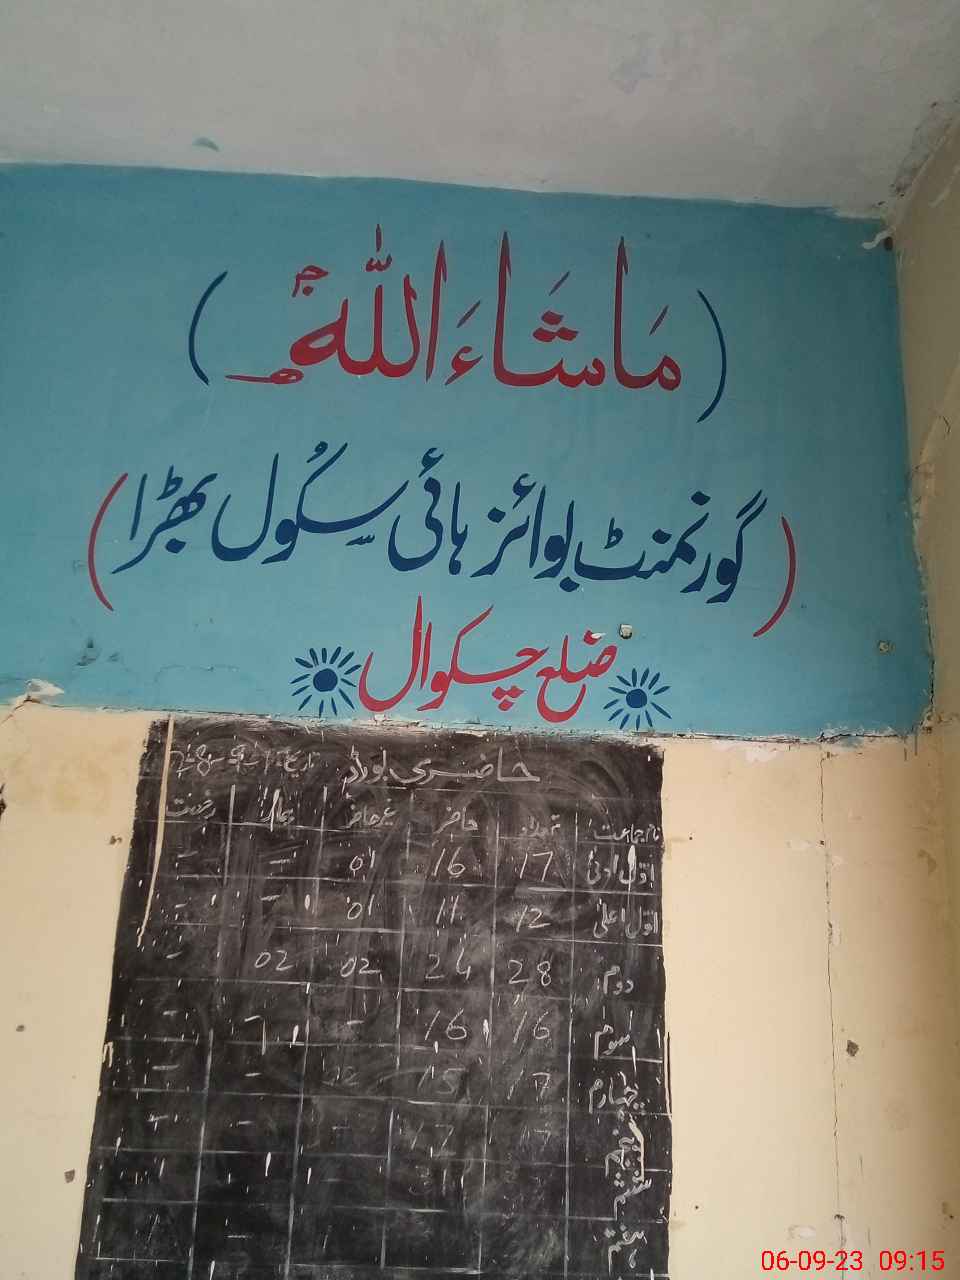 (مَا شَاءَ اللّٰهُ)
(گورنمنٹ بوائز ہائی سکُول بھڑا)
ضلع چکوال
حاضری بورڈ تاریخ
نام جماعت تعداد حاضر غیر حاضر بیمار رخصت
اوّل ادنیٰ 17 16 01 - -
اوّل اعلیٰ 12 11 01 - -
دوم 28 24 02 02 -
سوم 16 16 - - -
چہارم 17 15 02 - -
پنجم 17 - - -
ششم
ہفتم
06-09-23 09:15